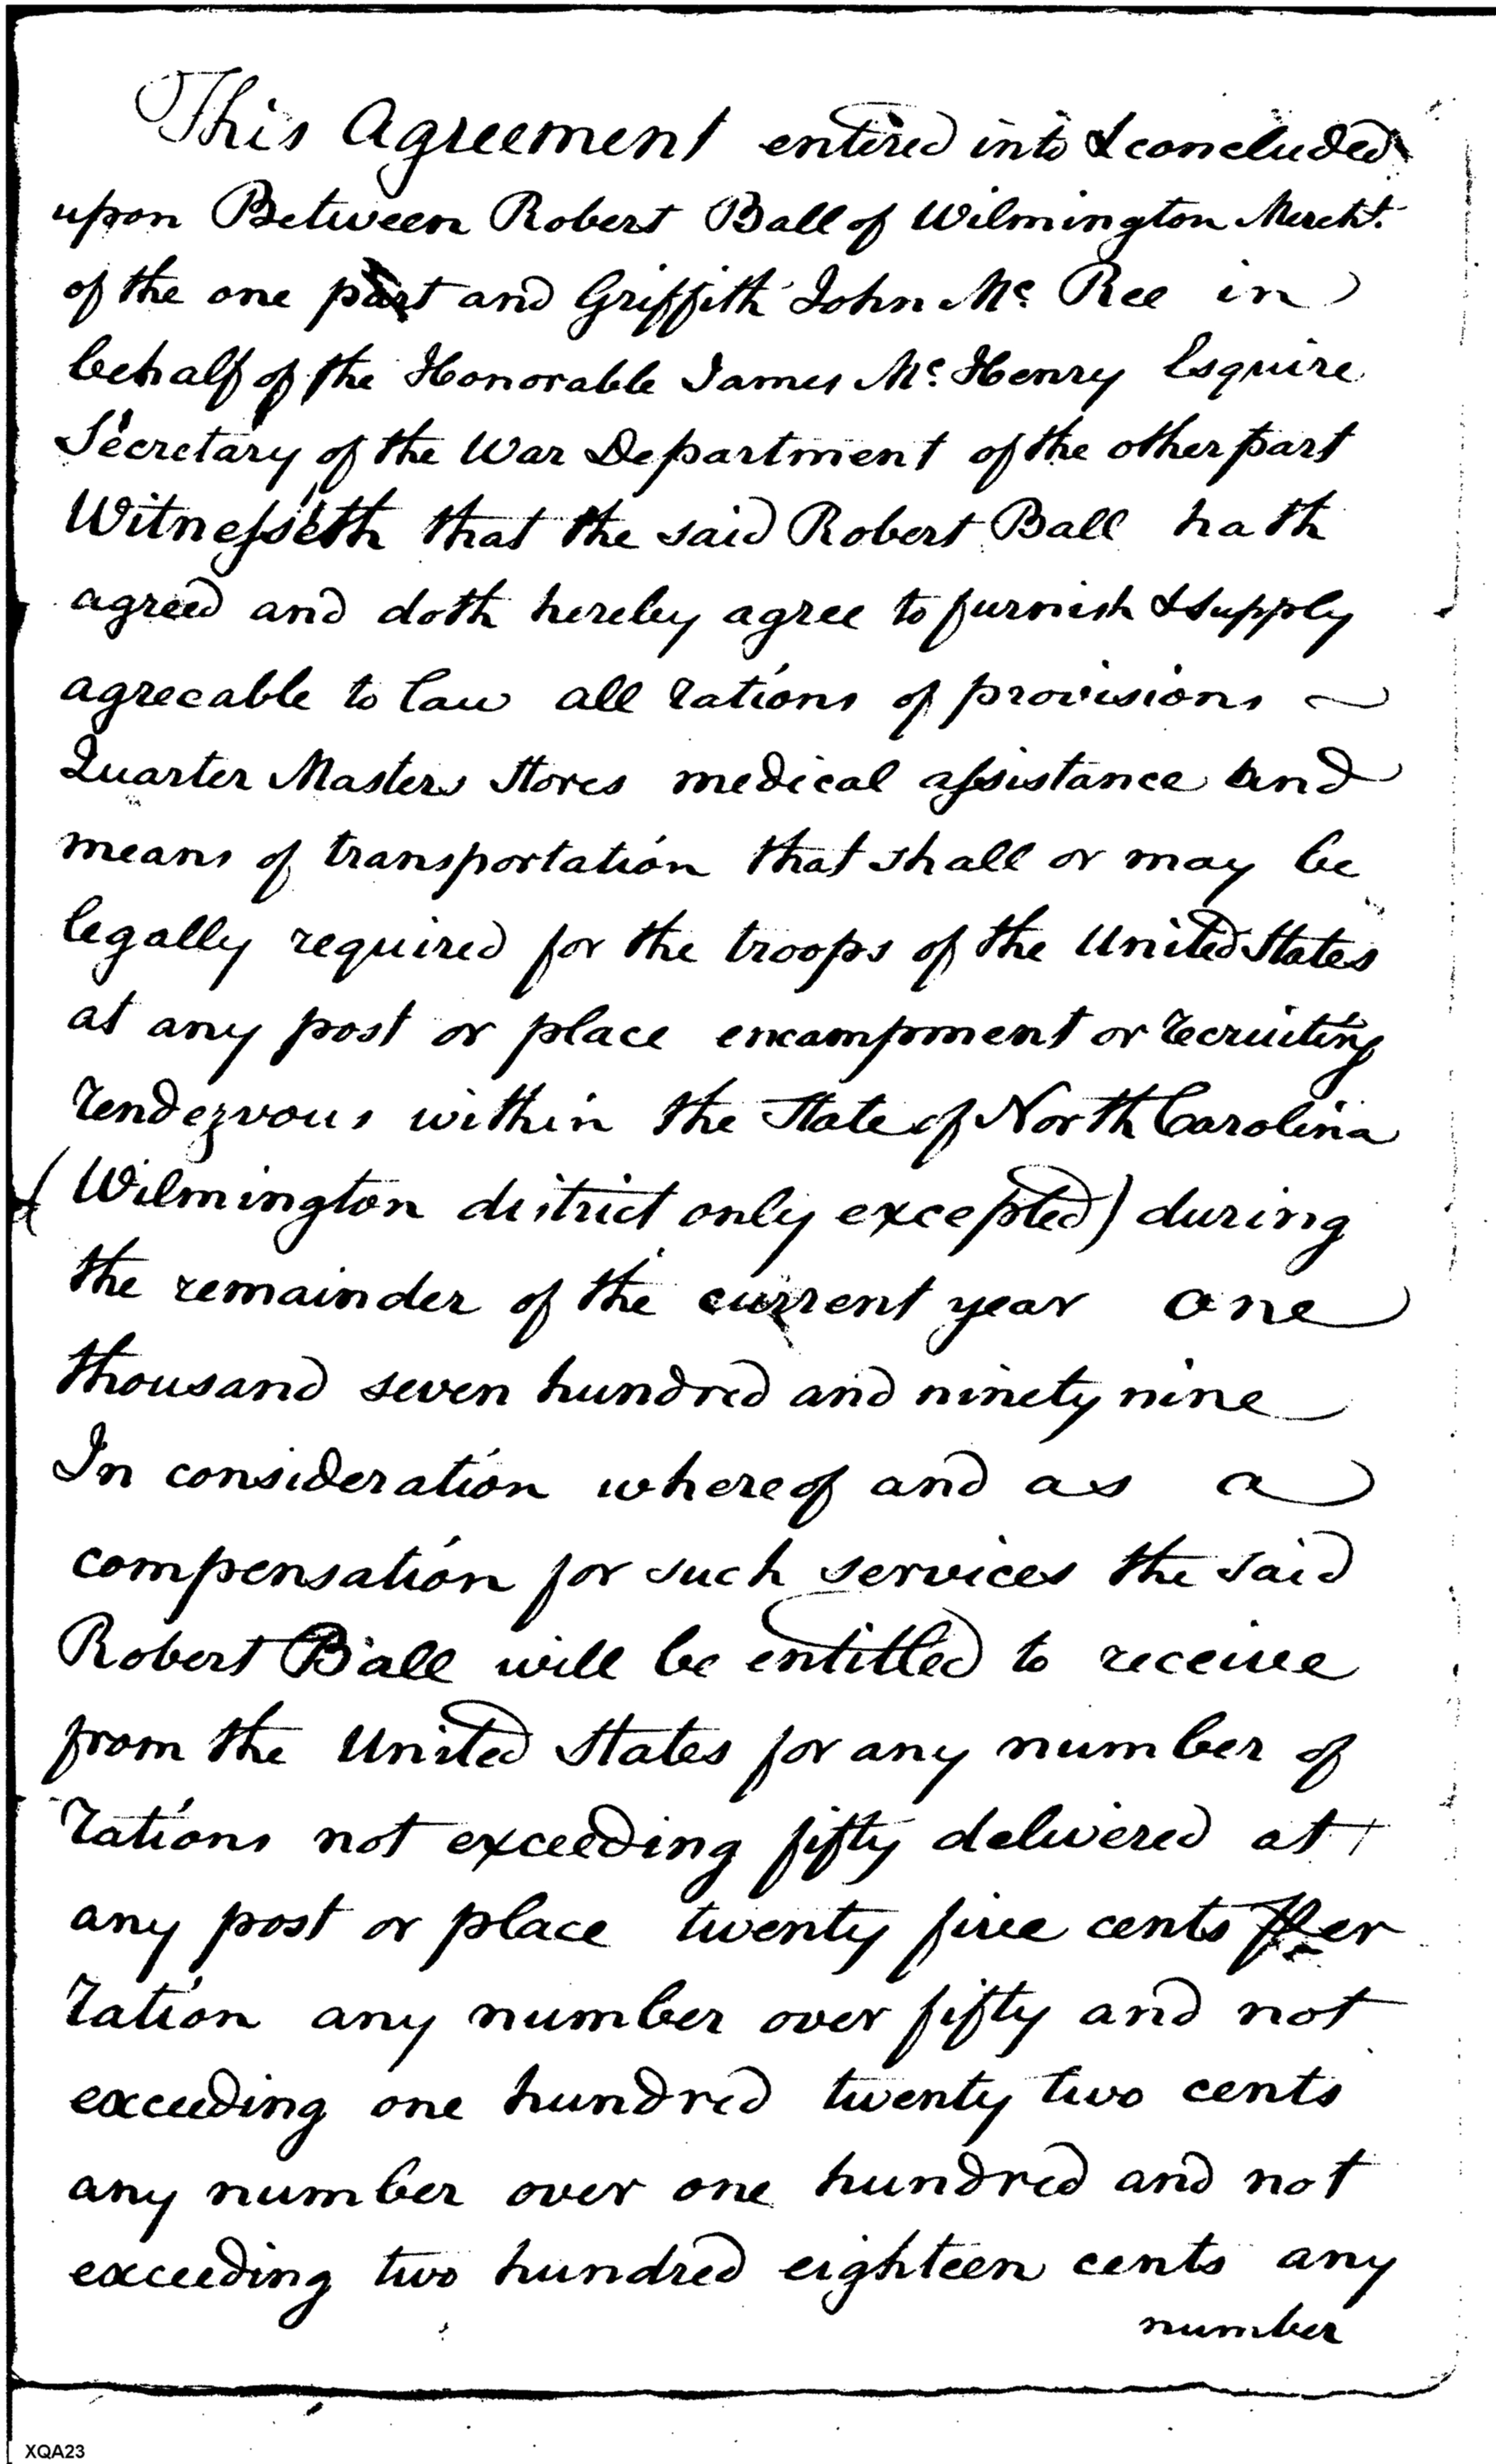 This Agreement entered into & concluded
upon Between Robert Ball of Wilmington Mercht.
of the one part and Griffith John Mc. Ree in
behalf of the Honorable James Mc. Henry Esquire
Secretary of the War Department of the other part
Witnesseth that the said Robert Ball hath
agreed and doth hereby agree to furnish & supply
agrecable to law all rations of provisions ~
Quarter Masters Stores medical assistance and
means of transportation that shall or may be
legally required for the troops of the United States
at any post or place encampment or recruiting
rendezvous within the State of North Carolina
(Wilmington district only excepted) during
the remainder of the current year one
thousand seven hundred and ninety nine
In consideration whereof and as a
compensation for such services the said
Robert Ball will be entitled to receive
from the United States for any number of
rations not exceeding fifty delivered at
any post or place twenty five cents per
ration any number over fifty and not
exceeding one hundred twenty two cents
any number over one hundred and not
exceeding two hundred eighteen cents any
number
XQA23